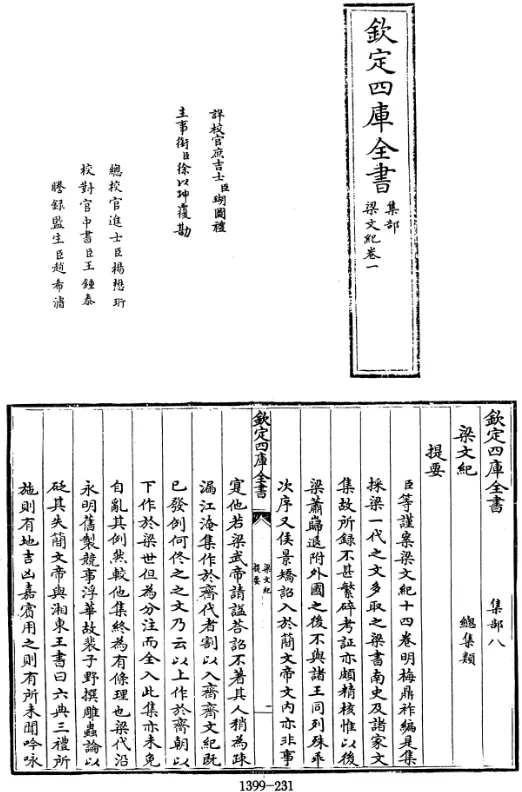 欽定四庫全書
集部
梁文紀卷一
詳校官庶吉士臣瑚圖禮
主事銜臣徐以坤覆勘
總校官進士臣楊懋珩
校對官中書臣王鍾泰
謄錄監生臣趙希濬
欽定四庫全書
集部八
梁文紀
總集類
提要
臣等謹案梁文紀十四卷明梅鼎祚編是集
採梁一代之文多取之梁書南史及諸家文
集故所錄不甚繁碎考証亦頗精核惟以後
梁蕭巋退附外國之後不與諸王同列殊乖
次序又侯景矯詔入於簡文帝文內亦非事
欽定四庫全書
梁文紀
提要
一
寔他若梁武帝請謚荅詔不著其人稍為疎
漏江淹集作於齊代者割以入齊齊文紀既
已發例何佟之之文乃云以上作於齊朝以
下作於梁世但為分注而全入此集亦未免
自亂其例然較他集終為有條理也梁代沿
永明舊製競事浮華故裴子野撰雕蟲論以
砭其失簡文帝與湘東王書曰六典三禮所
施則有地吉凶嘉賓用之則有所未聞吟咏
1399-231